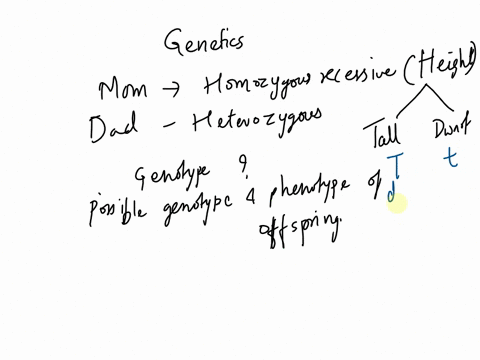 Genetics
Mom → Homozygous recessive (Height)
Dad – Heterozygous
Tall Dwarf
T t
Genotype ?
possible genotype & phenotype of
d
offspring.